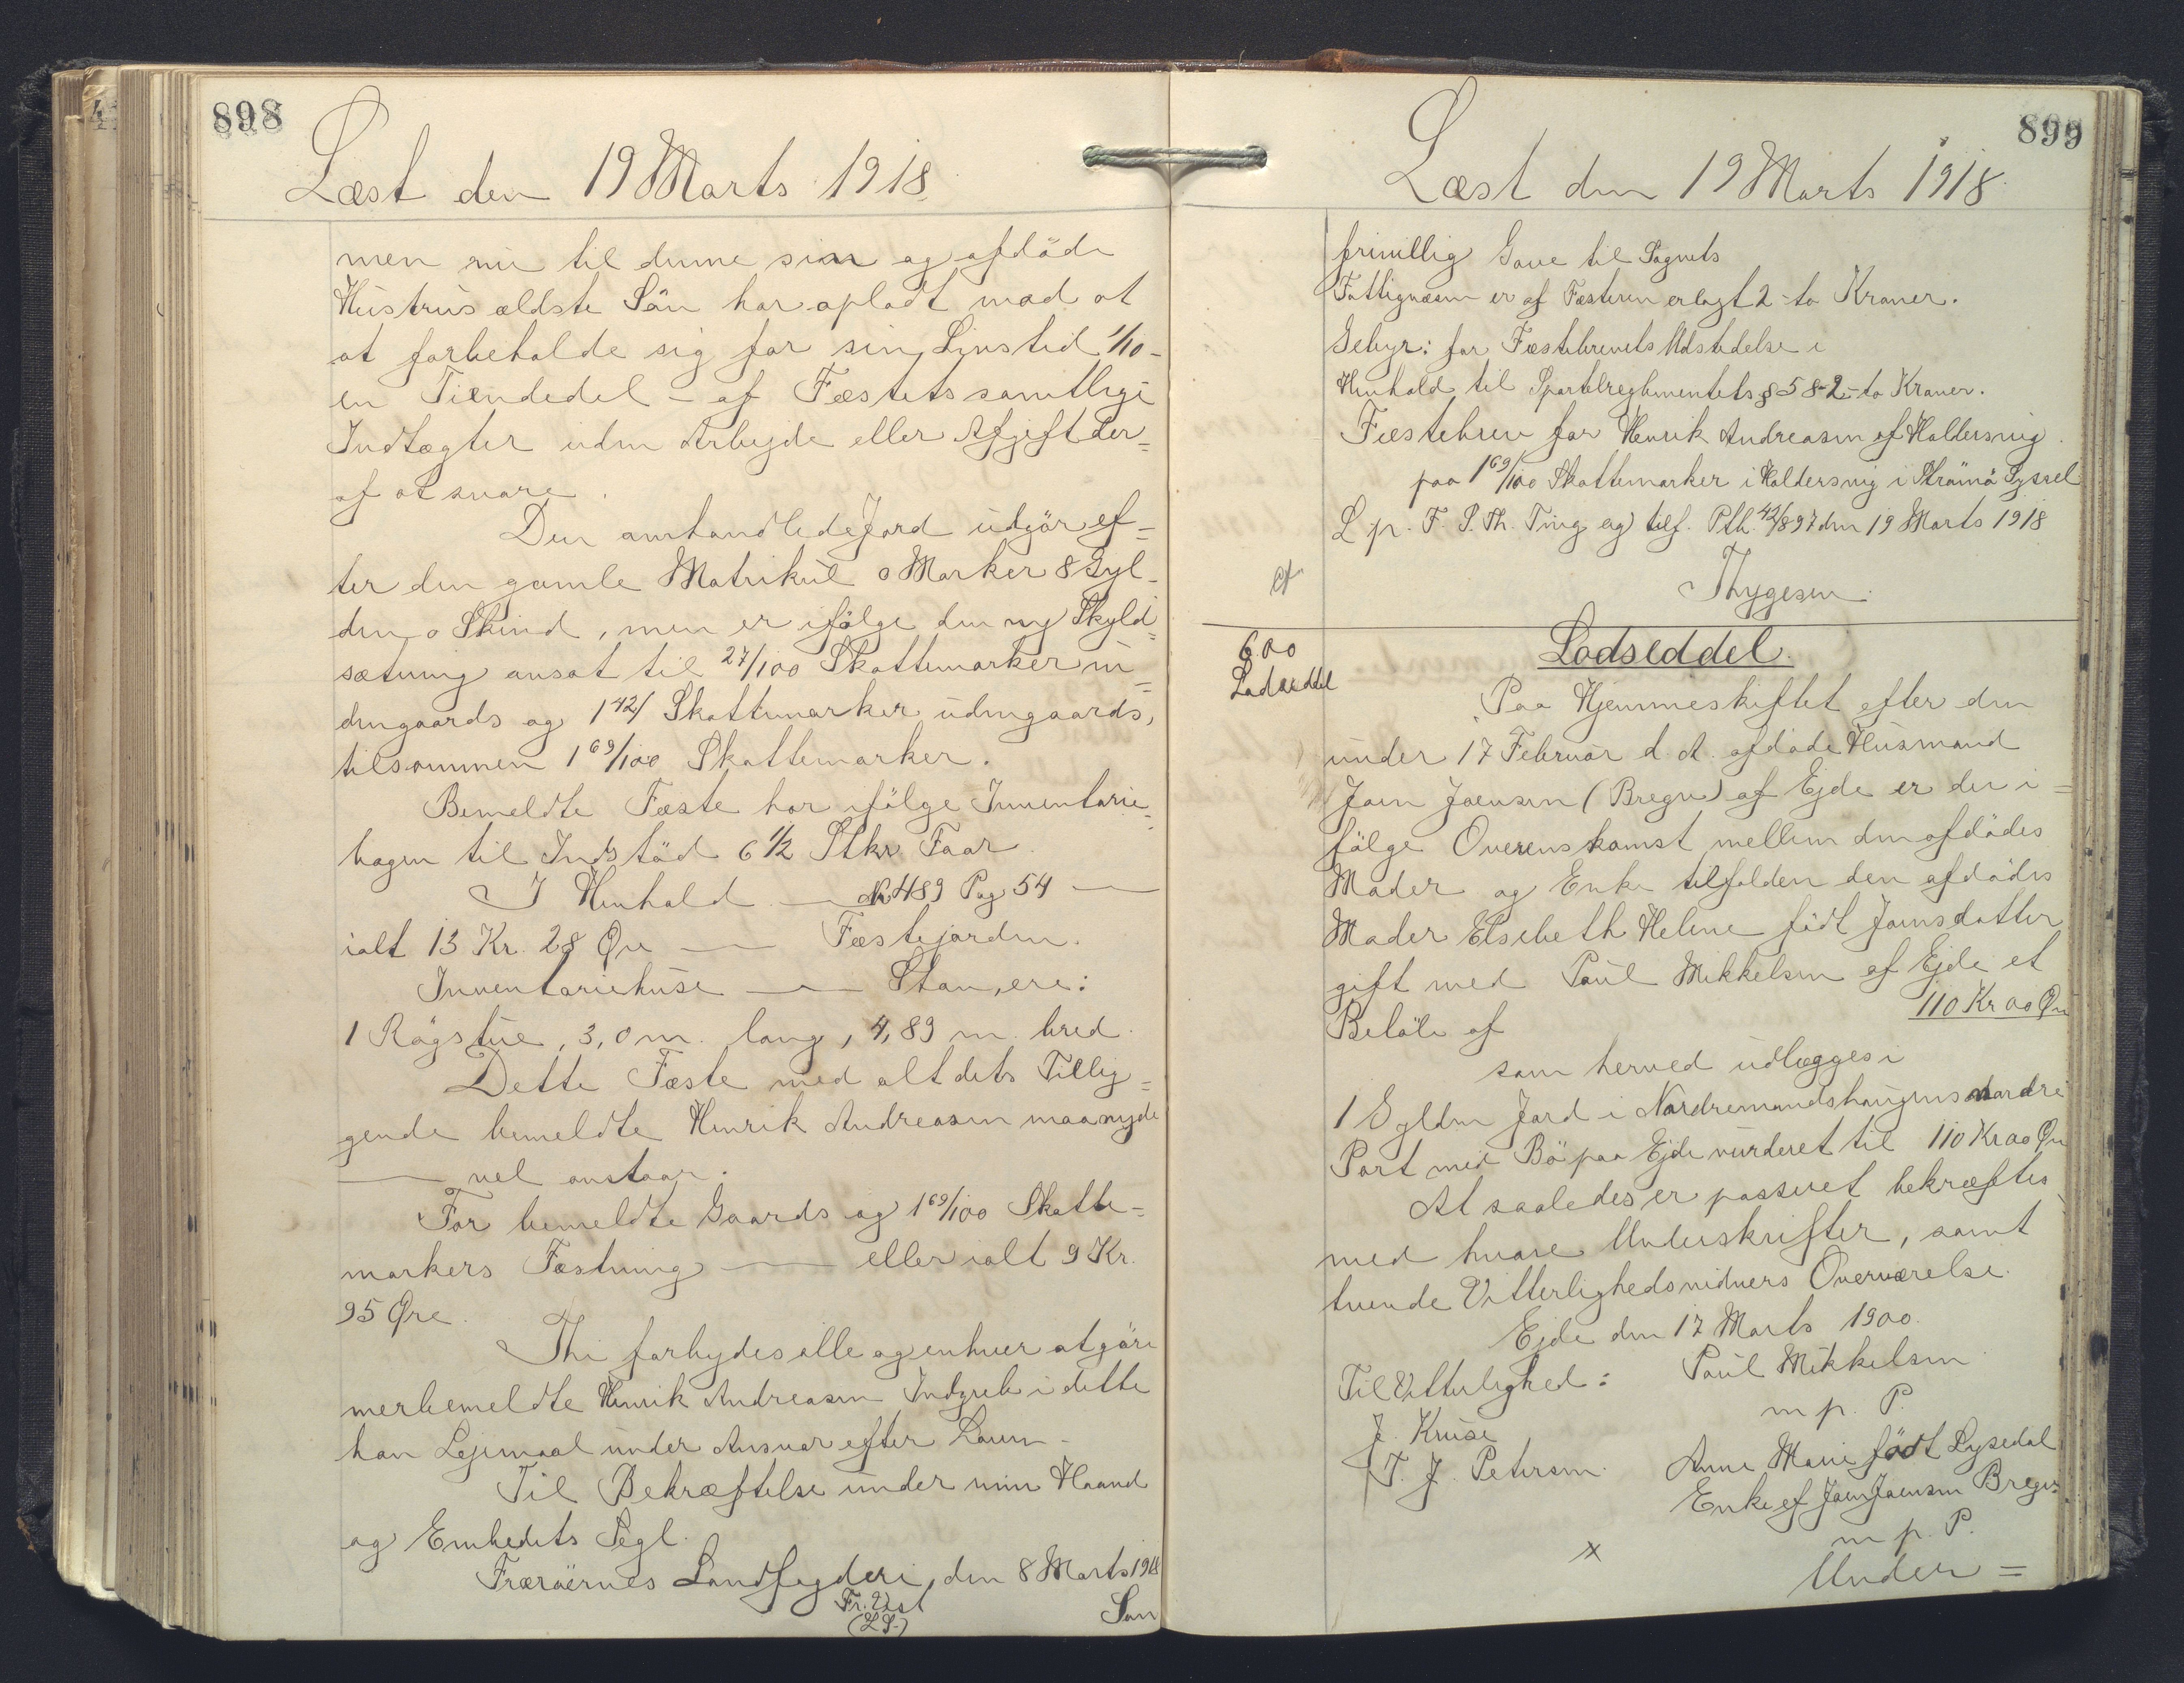 898
Læst den 19 Marts 1918.
men nu til denne sin og afdöde
Hustrus ældste Sön har opladt mod at
at forbeholde sig for sin Livstid 1/10 -
en Tiendedel - af Fæstets samtlige
Indtægter uden Arbejde eller Afgift der=
af at svare.
Den omhandlede Jord udgör ef=
ter den gamle Matrikul 0 Marker 8 Gyl-
den 0 Skind, men er ifölge den ny Skyld=
sætning ansat til 27/100 Skattemarker in=
dengaards og 1 42/ Skattemarker udengaards,
tilsammen 1 69/100 Skattemarker.
Bemeldte Fæste har ifölge Inventarie=
bogen til Indstöd 6 1/2 Stkr Faar.
I Henhold — No 489 Pag 54 —
ialt 13 Kr. 28 Øre — Fæstejorden.
Inventariehuse — Stand, ere:
1 Rögstue, 3,0 m. lang, 4,89 m. bred.
Dette Fæste med alt dets Tillig=
gende bemeldte Henrik Andreasen maa nyde
— vel anstaar.
For bemeldte Gaards og 1 69/100 Skatte=
markers Fæstning — eller ialt 9 Kr.
95 Øre.
Thi forbydes alle og enhver at göre
merbemeldte Henrik Andreasen Indgreb i dette
han Lejemaal under Ansvar efter Loven.
Til Bekræftelse under min Haand
og Embedets Segl.
Færöernes Landfogderi, den 8 Marts 1918
Fr. Vest
(L.S.)
Som
899
Læst den 19 Marts 1918.
frivillig Gave til Sognets
Fattigvæsen er af Fæsteren erlagt 2 - to Kroner.
Gebyr: for Fæstebrevets Udstedelse i
Henhold til Sportelreglementets § 58 - 2 - to Kroner.
Fæstebrev for Henrik Andreasen af Haldersvig
paa 1 69/100 Skattemarker i Haldersvig i Strömö Syssel
L p. F. S. Th. Ting og tilf. Pth. 42/897 den 19 Marts 1918
Thygesen.
6.00
Lodseddel
Lodseddel.
Paa Hjemmeskiftet efter den
under 17 Februar d. A. afdøde Husmand
Joen Joensen (Bregn) af Ejde er der i=
fölge Overenskomst mellem den afdödes
Moder og Enke tilfalden den afdödes
Moder Elsebeth Helene födt Joensdatter
gift med Poul Mikkelsen af Ejde et
Belöb af 110 Kr 00 Øre
som herved udlægges i
1 Gylden Jord i Nordremandshaugens nordre
Part med Bö paa Ejde vurderet til 110 Kr 00 Øre
At saaledes er passeret bekræftes
med hvore Underskrifter, samt
tvende Vitterlighedsvidners Overværelse.
Ejde den 17 Marts 1900.
Til Vitterlighed: Poul Mikkelsen
m. p. P.
J. Kruse
T. J. Petersen. Anne Marie födt Lysedal
Enke ef Joen Joensen Bregn
m p. P.
x
Under =